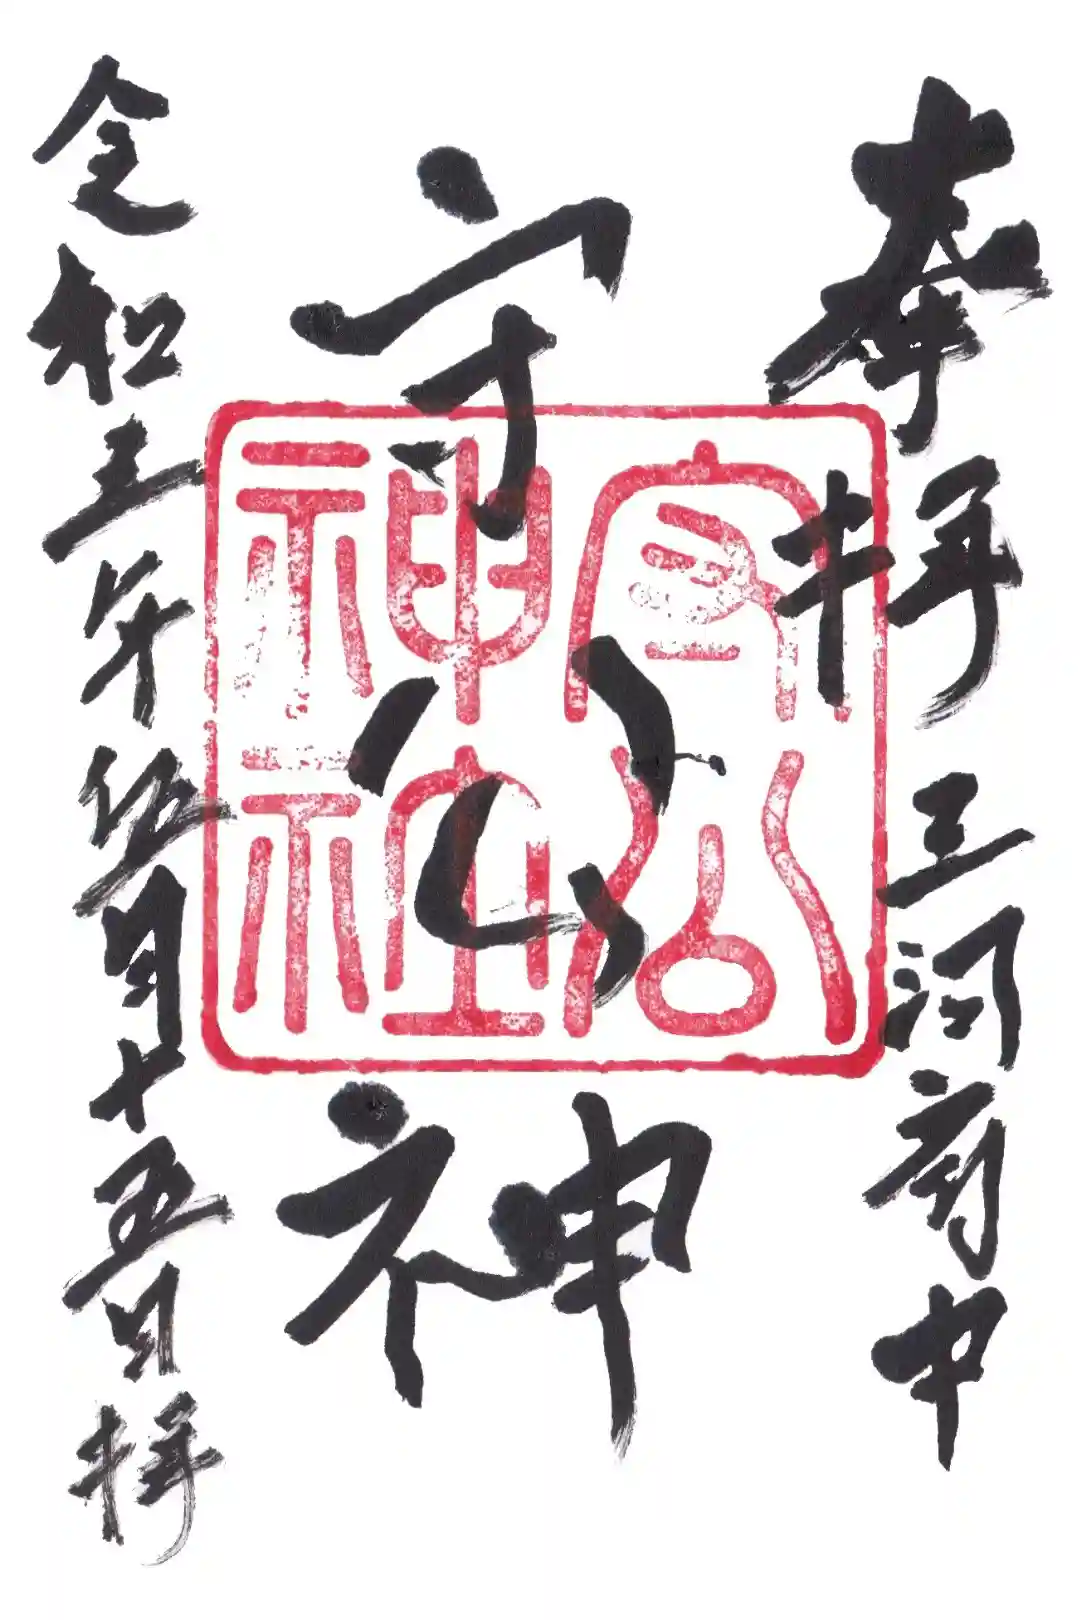 奉拝 三河府中
守公神
令和三年伍月十五日拝
守公
神社